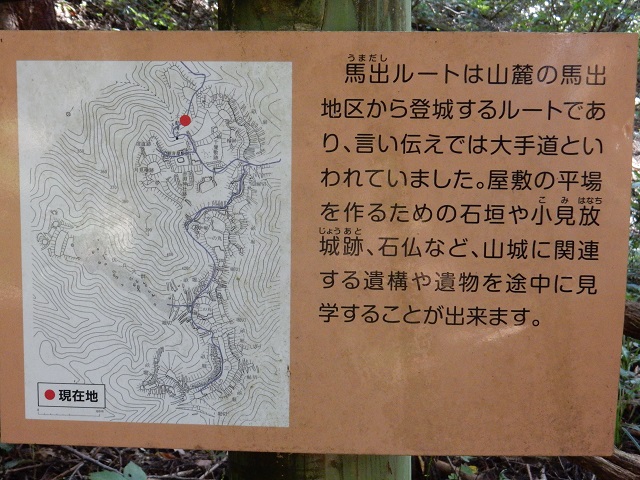 うまだし
馬出ルートは山麓の馬出
地区から登城するルートであ
り、言い伝えでは大手道とい
われていました。屋敷の平場
こみはなち
を作るための石垣や小見放
じょうあと
城跡、石仏など、山城に関連
する遺構や遺物を途中に見
学することが出来ます。
現在地